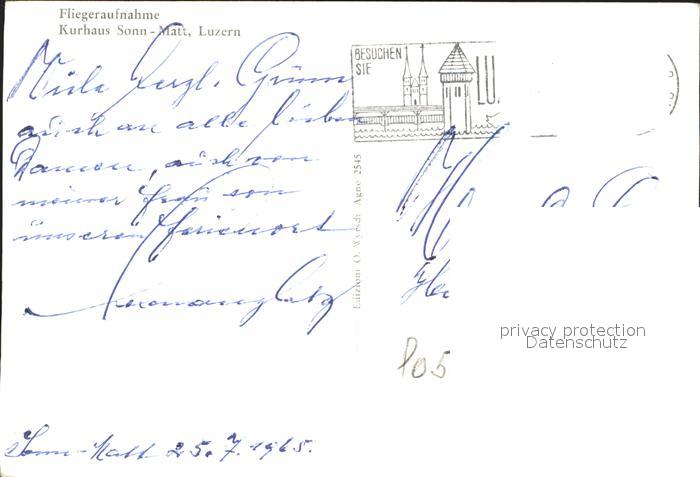 Fliegeraufnahme
Kurhaus Sonn-Matt, Luzern
BESUCHEN
SIE
LU
Viele herzl. Grüsse
auch an alle lieben
Damen, auch von
meiner Frau von
unserem Ferienort
Edizioni O. Wyrsch Agno 2545
105
privacy protection
Datenschutz
Sonn-Matt 25.7.1965.